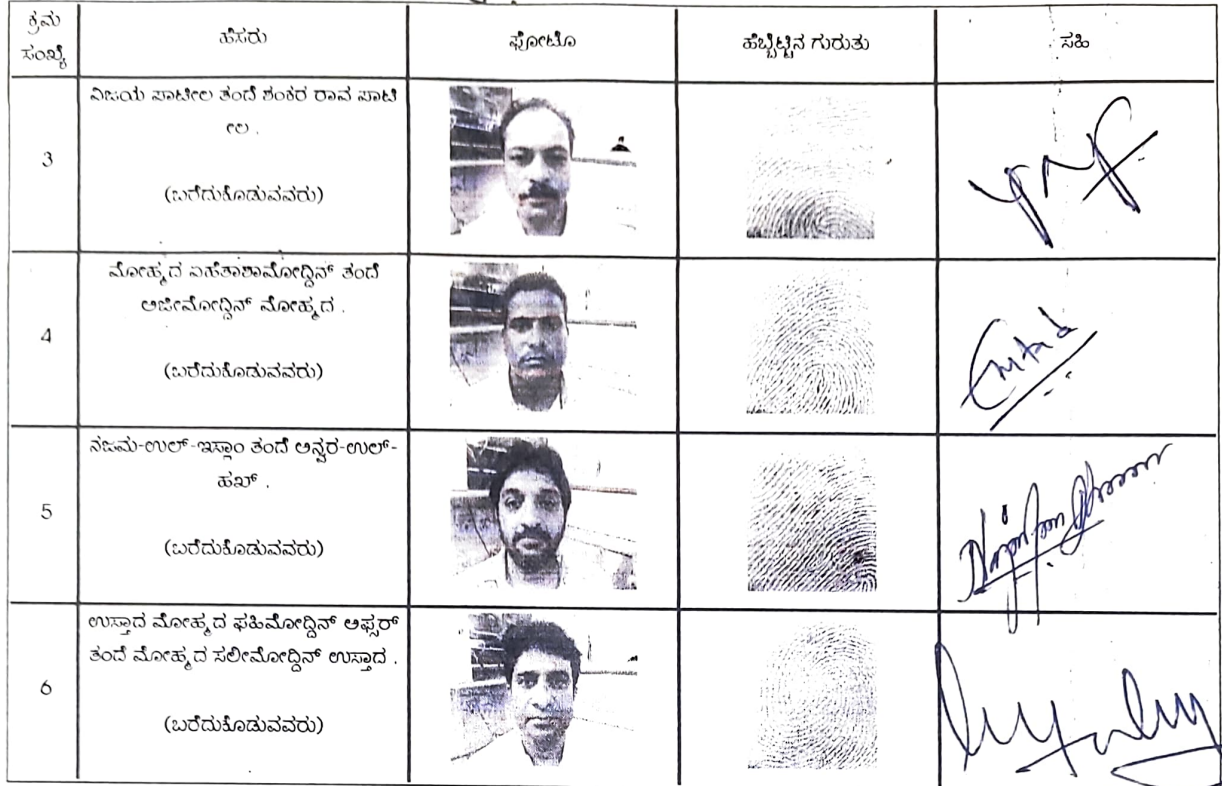 ಕ್ರಮ
ಸಂಖ್ಯೆ
ಹೆಸರು
ಫೋಟೊ
ಹೆಬ್ಬೆಟ್ಟಿನ ಗುರುತು
ಸಹಿ
3
ವಿಜಯ ಪಾಟೀಲ ತಂದೆ ಶಂಕರ ರಾವ ಪಾಟಿ
ೀಲ .
(ಬರೆದುಕೊಡುವವರು)
4
ಮೋಹ್ಮದ ಏಹೆತಾಶಾಮೋದ್ದಿನ್ ತಂದೆ
ಅಜೀಮೋದ್ದಿನ್ ಮೋಹ್ಮದ .
(ಬರೆದುಕೊಡುವವರು)
5
ನಜಮ-ಉಲ್-ಇಸ್ಲಾಂ ತಂದೆ ಅನ್ವರ-ಉಲ್-
ಹಖ್ .
(ಬರೆದುಕೊಡುವವರು)
6
ಉಸ್ತಾದ ಮೋಹ್ಮದ ಫಹಿಮೋದ್ದಿನ್ ಅಫ್ಸರ್
ತಂದೆ ಮೋಹ್ಮದ ಸಲೀಮೋದ್ದಿನ್ ಉಸ್ತಾದ .
(ಬರೆದುಕೊಡುವವರು)